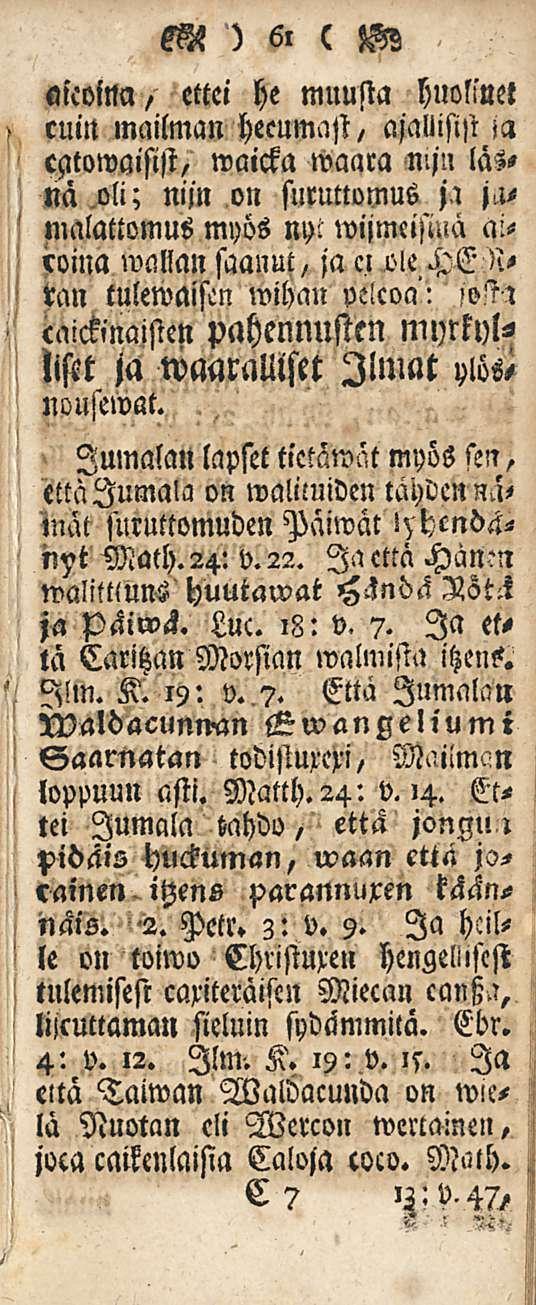 ) 61 (
aicoina, ettei he muusta huolinet
cuin mailman hecumast, ajallisist ja
catowaisist, waicka waara nijn läs-
nä oli; nijn on suruttomus ja ju-
malattomus myös nyt wijmeisinä ai-
coina wallan saanut, ja ei ole HERra-
ran tulewaisen wihan pelcoa: josta
caickinaisten pahennusten myrkyl-
liset ja waaralliset Ilmat ylös-
nousewat.
Jumalan lapset tietäwät myös sen,
että Jumala on walituiden tähden nä-
mät suruttomuden Päiwät lyhendä-
nyt Math. 24: v. 22. Ja että Hänen
walittuns huutawat Händä Yötä
ja Päiwä. Luc. 18: v. 7. Ja et-
tä Caritzan Morsian walmista itzens.
Ilm. K. 19: v. 7. Että Jumalan
Waldacunnan Ewangeliumi
Saarnatan todistuxexi, Mailman
loppuun asti. Matth. 24: v. 14. Et-
tei Jumala tahdo, että jongun
pidäis huckuman, waan että jo-
cainen itzens parannuxen kään-
näis. 2. Petr. 3: v. 9. Ja heil-
le on toiwo Christuxen hengellisest
tulemisest caxiteräisen Miecan canßa,
lijcuttaman sieluin sydämmitä. Ebr.
4: v. 12. Ilm. K. 19: v. 15. Ja
että Taiwan Waldacunda on wie-
lä Nuotan eli Wercon wertainen,
joca caikenlaisia Caloja coco. Math.
C 7 13: v. 47,